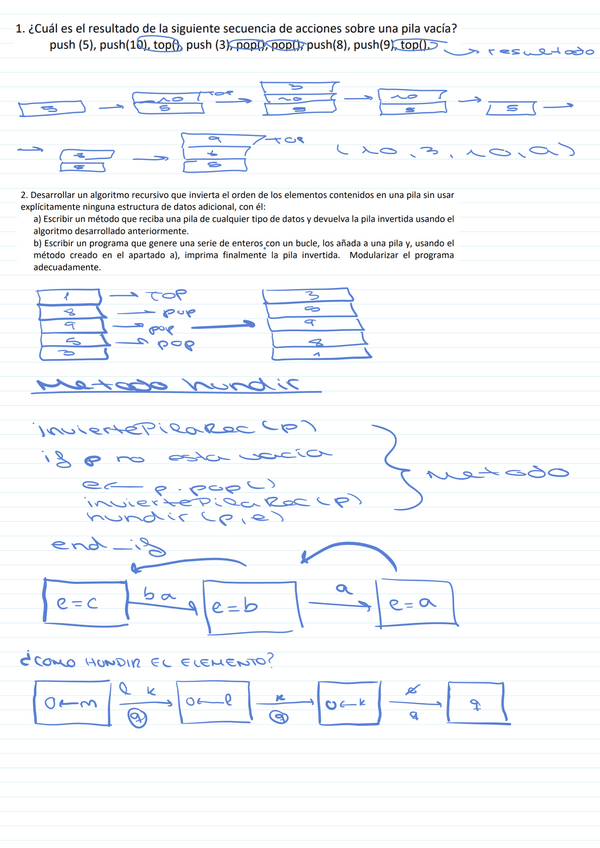 1. ¿Cuál es el resultado de la siguiente secuencia de acciones sobre una pila vacía?
push (5), push(10), top(), push (3), pop(), pop(), push(8), push(9), top(). resultado
5
10 TOP
5
3
10
5
10
5
5
5
9 TOP
5
(10, 3, 10, 9)
2. Desarrollar un algoritmo recursivo que invierta el orden de los elementos contenidos en una pila sin usar
explícitamente ninguna estructura de datos adicional, con él:
a) Escribir un método que reciba una pila de cualquier tipo de datos y devuelva la pila invertida usando el
algoritmo desarrollado anteriormente.
b) Escribir un programa que genere una serie de enteros con un bucle, los añada a una pila y, usando el
método creado en el apartado a), imprima finalmente la pila invertida. Modularizar el programa
adecuadamente.
1 TOP
8 pop
9 pop
5 pop
3
3
9
8
1
Metodo hundir
inviertePilaRec (p)
if p no esta vacia
e← p.pop()
inviertePilaRec (p)
hundir (p,e)
Metodo
end_if
e=c ba e=b a e=a
¿COMO HUNDIR EL ELEMENTO?
O←m l k O←l k O←k q
q q q